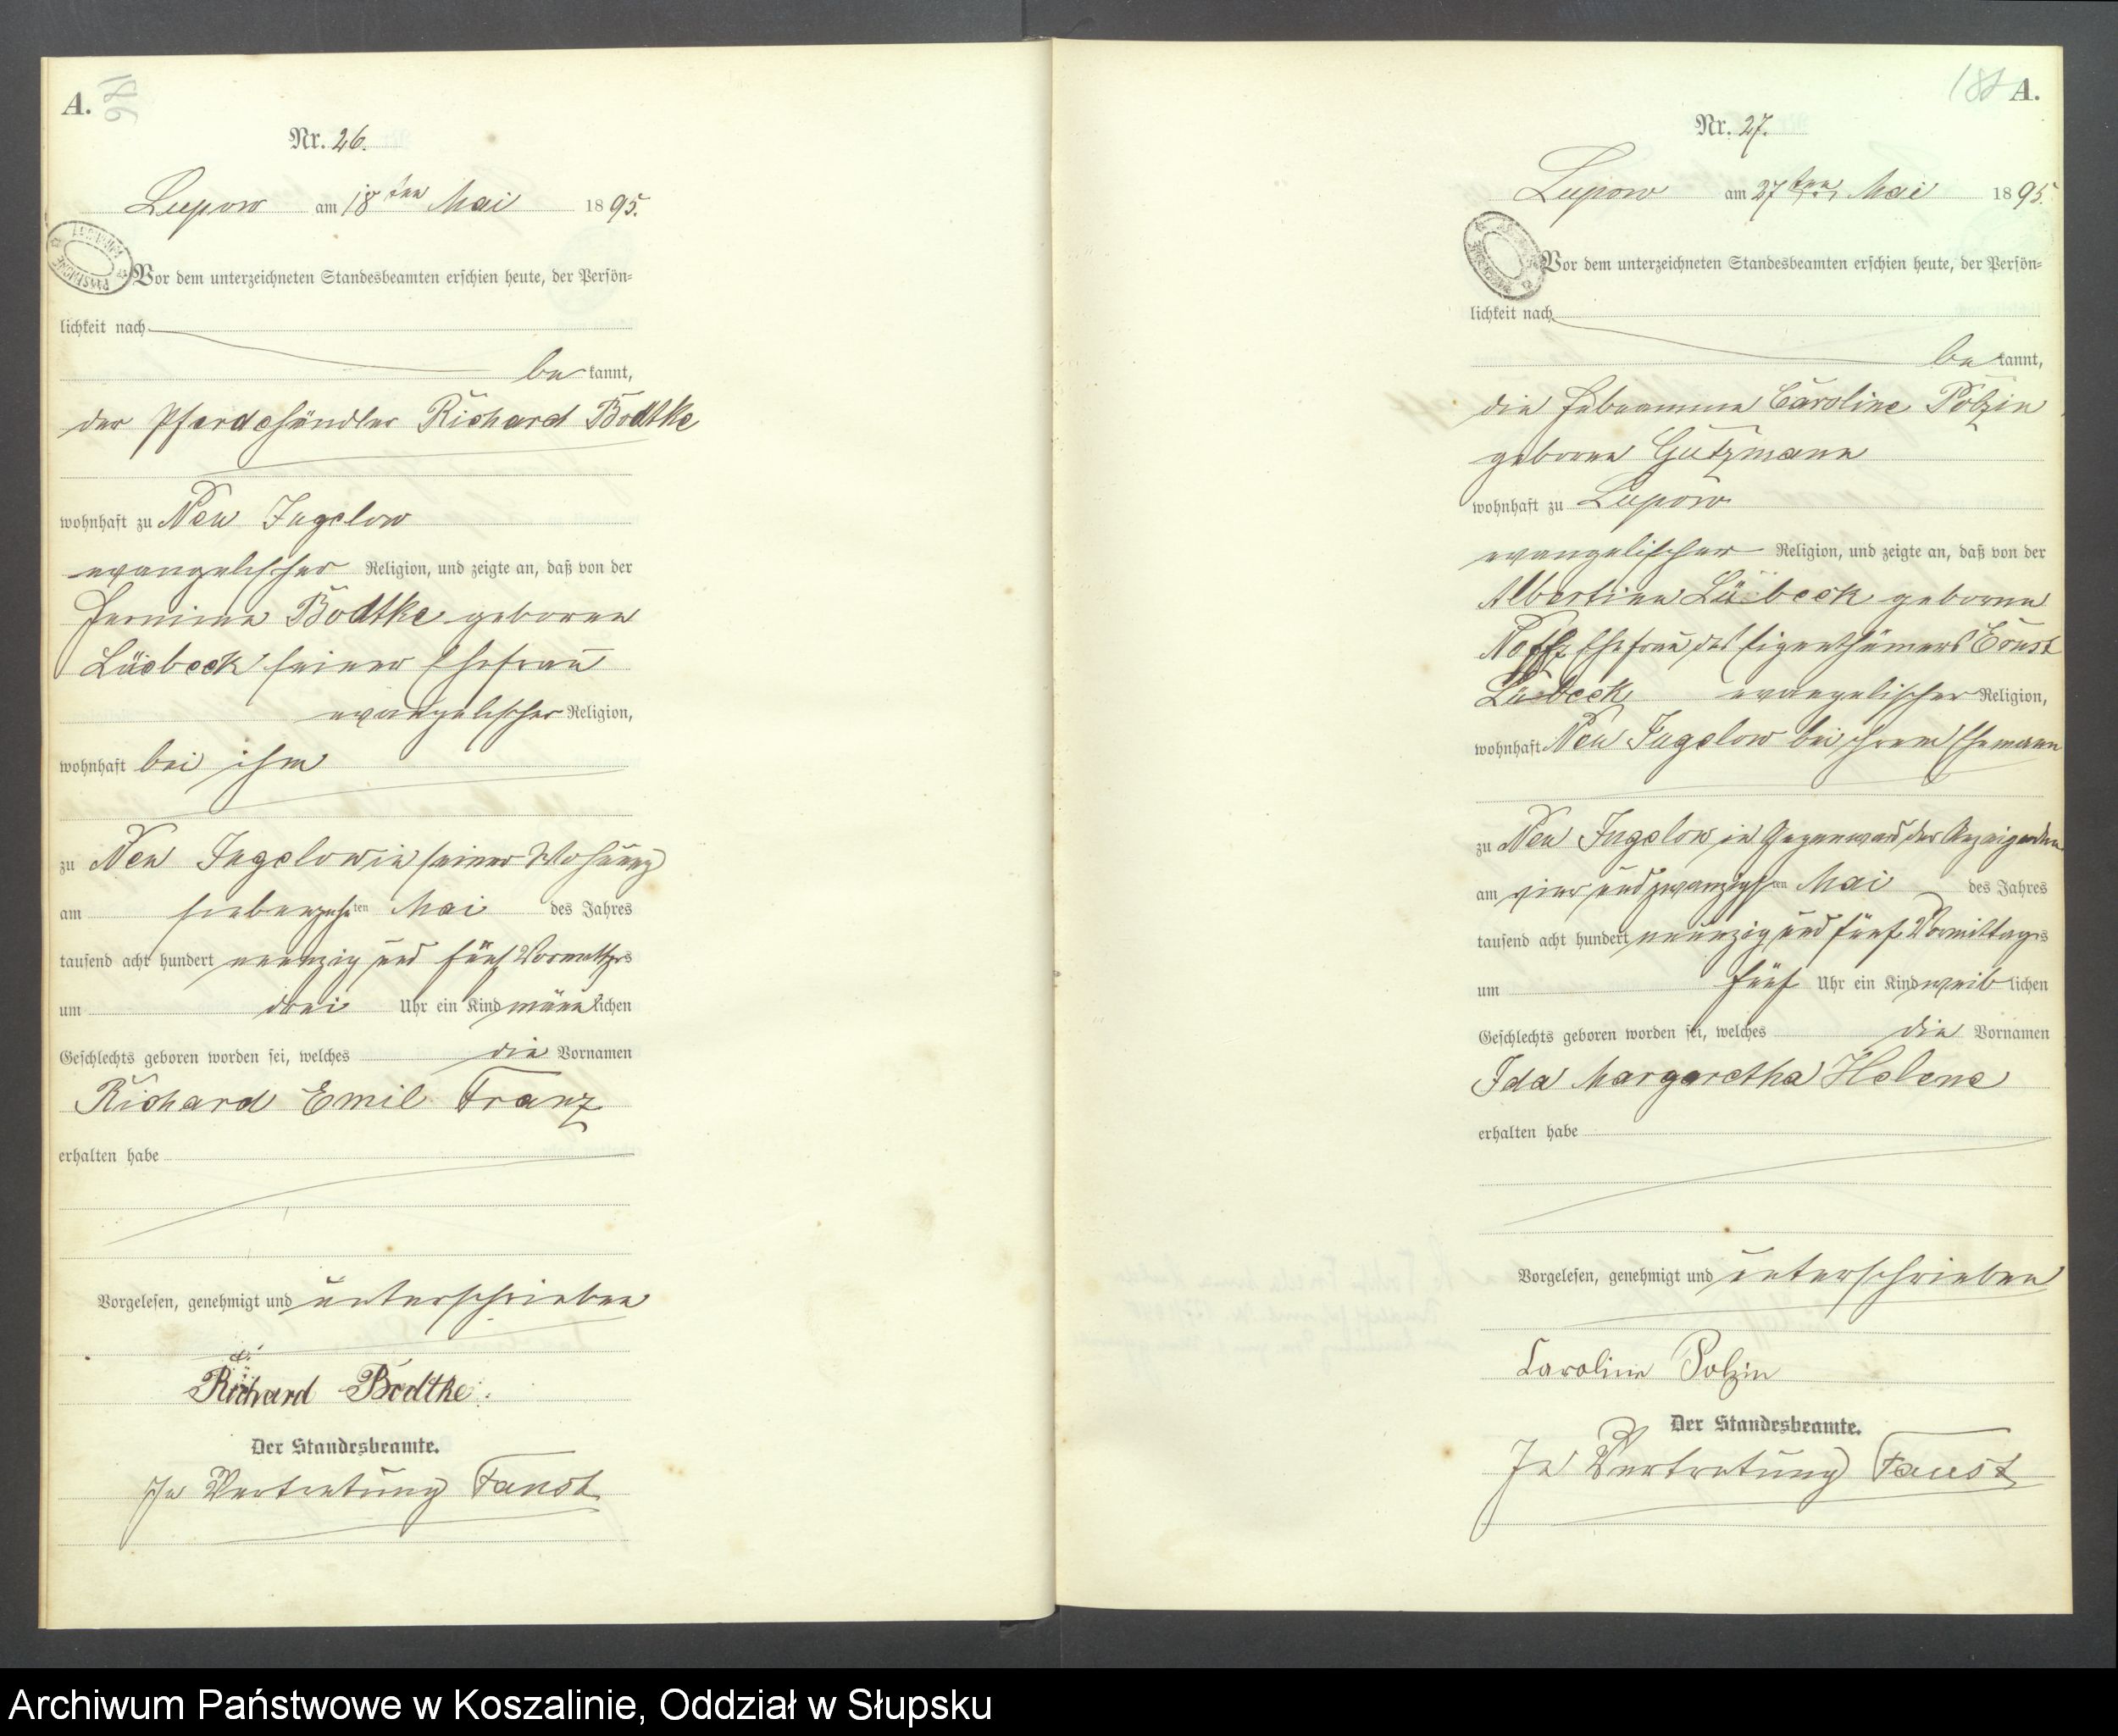 A.
186
Nr. 26.
Lupow am 18ten Mai 1895.
Vor dem unterzeichneten Standesbeamten erschien heute, der Persön-
lichkeit nach
be kannt,
der Pferdehändler Richard Bodtke
wohnhaft zu Neu Jugelow
evangelischer Religion, und zeigte an, daß von der
Hermine Bodtke geborene
Lübeck seiner Ehefrau
evangelischer Religion,
wohnhaft bei ihm
zu Neu Jugelow in seiner Wohnung
am siebenzehnten Mai des Jahres
tausend acht hundert neunzig und fünf Vormittags
um drei Uhr ein Kind männlichen
Geschlechts geboren worden sei, welches die Vornamen
Richard Emil Franz
erhalten habe
Vorgelesen, genehmigt und unterschrieben
Richard Bodtke.
Der Standesbeamte.
In Vertretung Faust
A.
Nr. 27.
Lupow am 27ten Mai 1895.
Vor dem unterzeichneten Standesbeamten erschien heute, der Persön-
lichkeit nach
be kannt,
die Hebeamme Caroline Polzin
geborne Gutzmann
wohnhaft zu Lupow
evangelischer Religion, und zeigte an, daß von der
Albertine Lübeck geborne
Noffz Ehefrau des Eigenthümers Ernst
Lübeck evangelischer Religion,
wohnhaft Neu Jugelow bei ihrem Ehemann
zu Neu Jugelow in Gegenward der Anzeigenden
am vier und zwanzigsten Mai des Jahres
tausend acht hundert neunzig und fünf Vormittags
um fünf Uhr ein Kind weiblichen
Geschlechts geboren worden sei, welches die Vornamen
Ida Margaretha Helene
erhalten habe
Vorgelesen, genehmigt und unterschrieben
Caroline Polzin
Der Standesbeamte.
In Vertretung Faust
Archiwum Państwowe w Koszalinie, Oddział w Słupsku